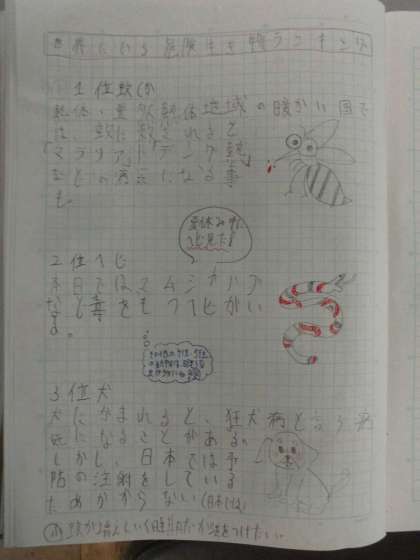 世界にいる危険生き物ランキング
1位蚊(か
熱帯・亜熱帯地域の暖かい国で
は、蚊に刺されると
「マラリア」「デング熱」
などの病気になる事
も。
夏休み中に
へび見た!
2位ヘビ
本日ではマムシやハブ
など毒をもつヘビがい
る。
3位犬
犬にかまれると、狂犬病と言う病
気になることがある。
しかし、日本では予
防の注射をしている
ためかからない(日本では)